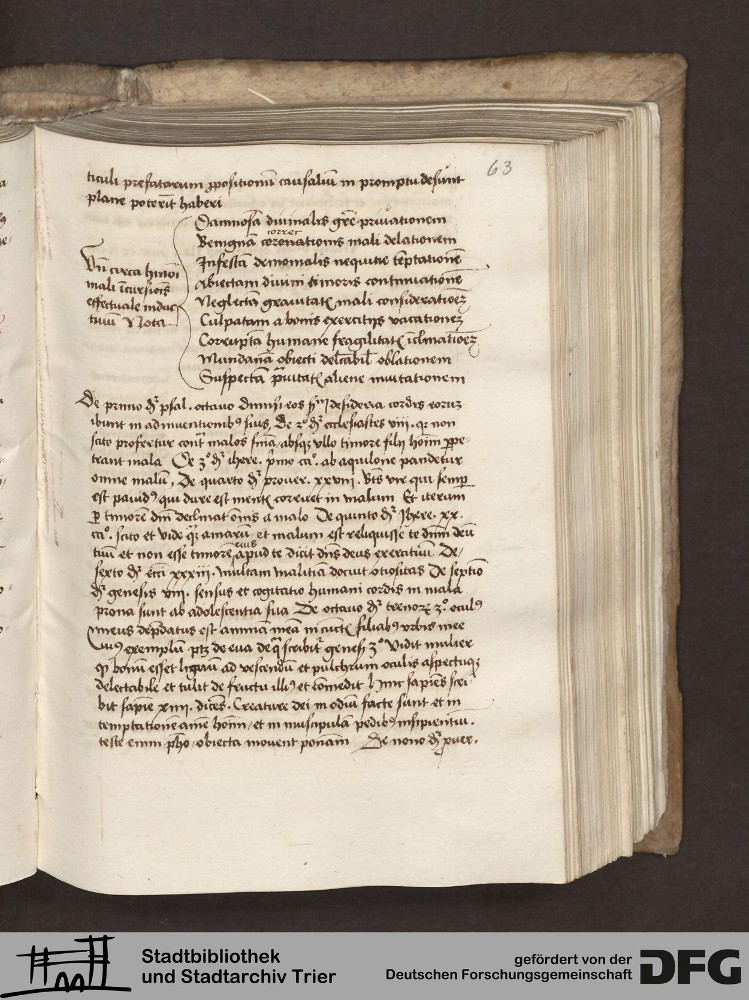 63
ticuli prefatarum ꝓpositionū causaliū in promptu desūnt
plane poterīt haberi
Vn̄ circa hmōi
mali īcursionis
effectuale induc
tiuū Nota
Damnosā diuinalis grē priuationem
correc
Benignā coronationis mali delationem
Infestā demonialis nequitie tēptationē
Abiectam diuini timoris continuationē
Neglectā grauitatꝭ mali consideratōeꝫ
Culpatam a bonis exercitijs vacationeꝫ
Corruptā humane fragilitatꝭ īclinatiōeꝫ
Mundanā obiecti delc̄abil̄ oblationem
Suspectā p̄uitatꝭ aliene inuitationem
De primo dr̄ psal. octauo dimisi eos sm̄ desideria cordis eorum
ibunt in adinuentionibꝰ suis, De 2º dr̄ ecclesiastes viii. qꝛ non
cito profertur cont̄ malos sn̄ia, absqꝫ vllo timore filij hoīm ꝑpe-
trant mala De 3º dr̄ ihere. p̄mo caº. ab aquilone pandetur
omne malū, De quarto dr̄ prouer. xxviii. Bt̄s vir qui semꝑ
est pauidꝰ qui dure est mentꝭ corruet in malum Et iterum
ꝑ timorē dn̄i declinat oīs a malo De quinto dr̄ Ihere. xx.
caº. scito et vide qꝫ amarū et malum est reliquisse te dn̄m deū
eius
tuū et non esse timorē apud te dicit dn̄s deus exercituū De/
sexto dr̄ Ecci xxxiii. multam malitiā docuit otiositas De septīo
dr̄ genesis viii. sensus et cogitatio humani cordis in mala
prona sunt ab adolescentia sua De octauo dr̄ trenorꝝ 3º. oculꝰ
meus dep̄datus est animā meā in cūctꝭ filiabꝰ vrbis mee
Cuiꝰ exemplū ptꝫ de eua de qͣ scribit̄ genesꝭ 3º Vidit mulier
qꝫ bonū esset lignū ad vescendū et pulchrum oculis aspectuqꝫ
delectabile et tulit de fructu illiꝰ et comedit Hinc sapiēs scri-
bit sapiē xiiii. dicēs. Creature dei in odiū facte sunt et in
temptationē aīme hoīm, et in muscipulā pedibꝰ insipientiū.
teste enim ph̄o, obiecta mouent potēciam De nono dr̄ ꝓuer.
Stadtbibliothek
und Stadtarchiv Trier
gefördert von der
Deutschen Forschungsgemeinschaft
DFG